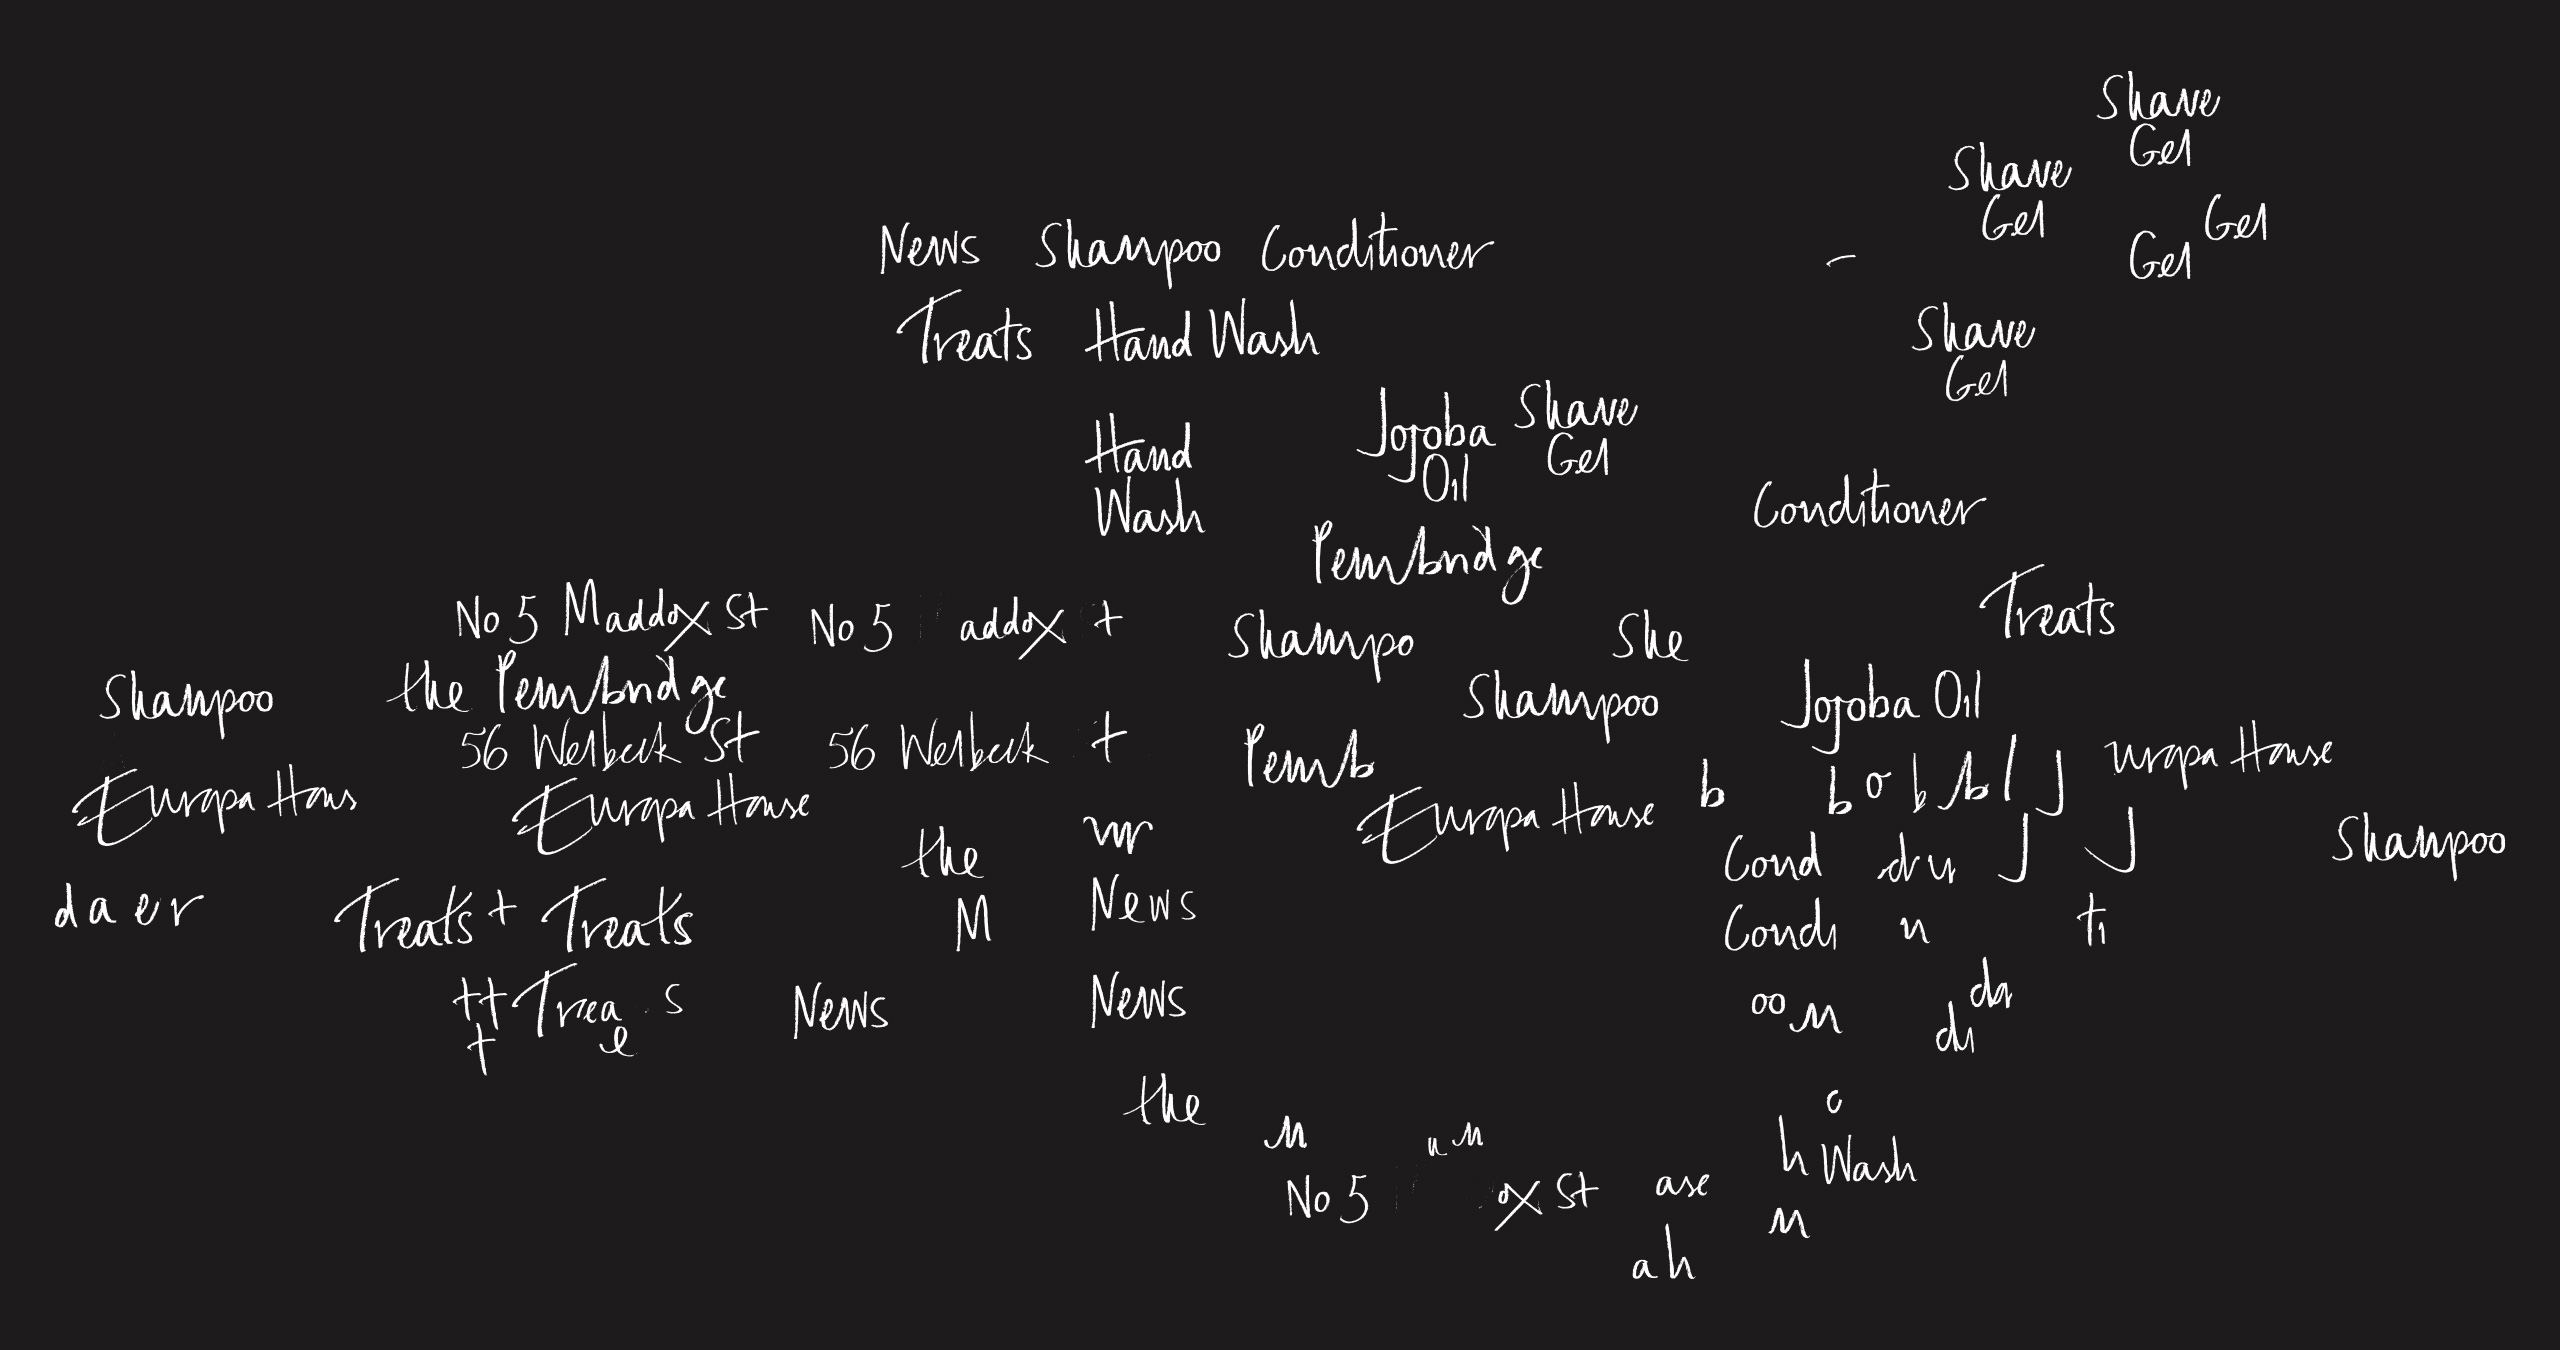 Shave
Gel
Shave
Gel
Gel
Gel
News Shampoo Conditioner
Treats Hand Wash
Shave
Gel
Jojoba
Oil
Shave
Gel
Hand
Wash
Conditioner
Pembridge
Treats
No 5 Maddox St
No 5 addox t
Shampo
She
Shampoo
the Pembridge
Shampoo
Jojoba Oil
56 Welbeck St
56 Welbeck t
Pemb
uropa House
Europa Hous
Europa House
Europa House
b
b o b b l J
the
Cond
J
J
Shampoo
d a e r
Treats t Treats
M
News
Condi
n
ti
t t Trea s
t
e
News
News
oo
da
di
the
c
h Wash
No 5
ox St
ase
a h